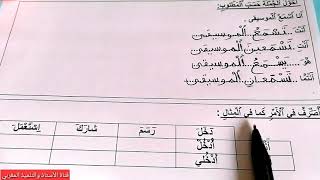 أحول الجملة حسب المطلوب:
أنا أسمع الموسيقى
أنتَ.. تَسْمَعُ.. الموسيقى
أنتِ.. تَسْمَعينَ الموسيقى
هو.. يَسْمَعُ.. الموسيقى
أنتما.. تَسْمَعانِ.. الموسيقى
أصرف في الأمر كما في المثال:
دَخَلَ رَسَمَ شارَكَ اِسْتَعْمَلَ
أنتَ اُدْخُلْ
اُدْخُلي
قناة الأستاذ والتلميذ المغربي